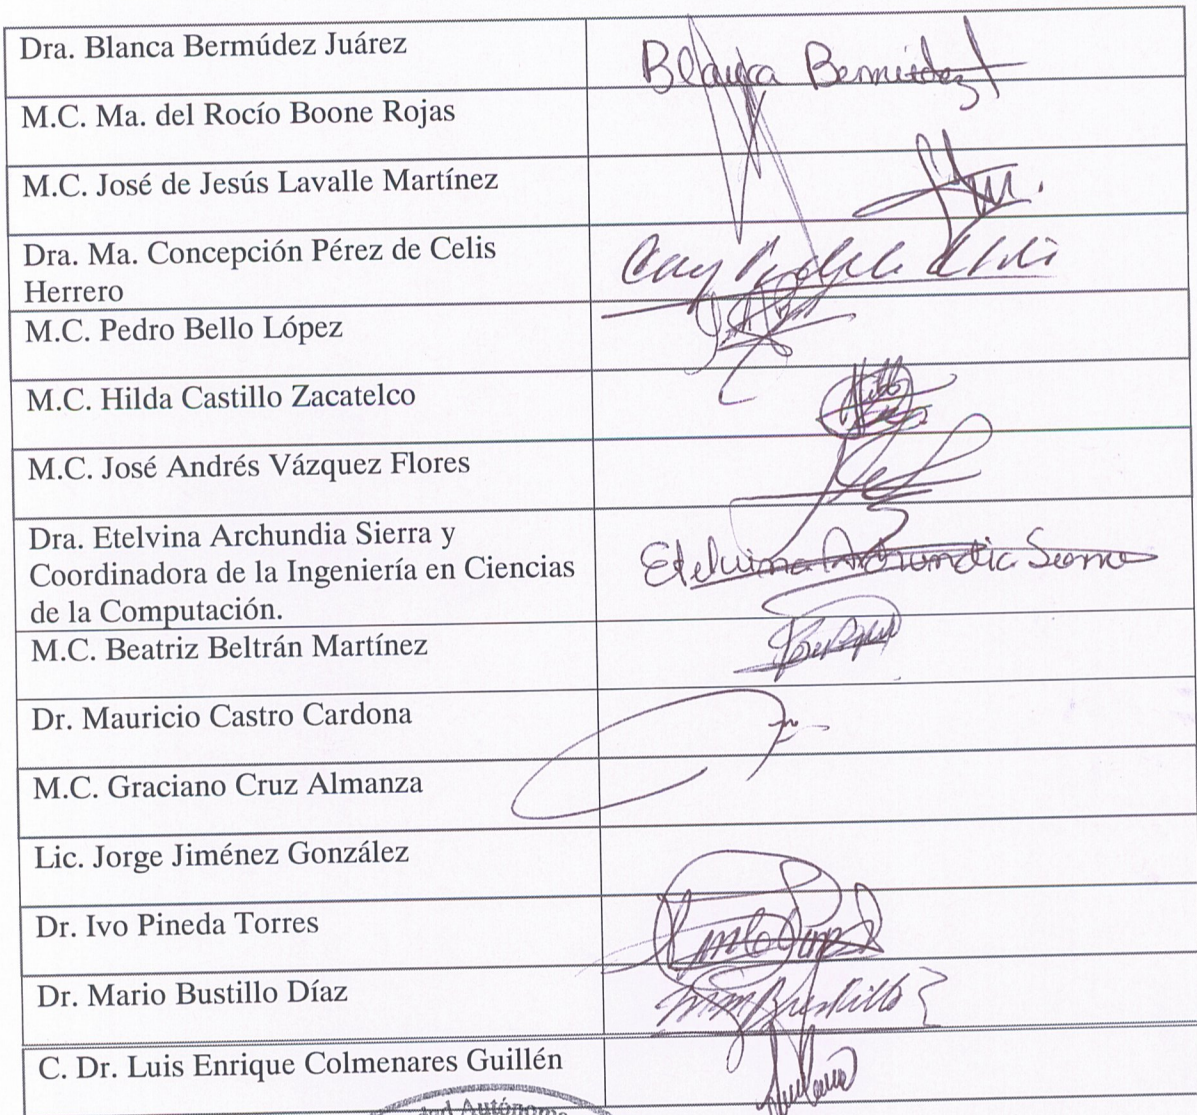 Dra. Blanca Bermúdez Juárez
Blanca Bermúdez
M.C. Ma. del Rocío Boone Rojas
M.C. José de Jesús Lavalle Martínez
Dra. Ma. Concepción Pérez de Celis
Herrero
M.C. Pedro Bello López
M.C. Hilda Castillo Zacatelco
M.C. José Andrés Vázquez Flores
Dra. Etelvina Archundia Sierra y
Coordinadora de la Ingeniería en Ciencias
de la Computación.
Etelvina Archundia Sierra
M.C. Beatriz Beltrán Martínez
Dr. Mauricio Castro Cardona
M.C. Graciano Cruz Almanza
Lic. Jorge Jiménez González
Dr. Ivo Pineda Torres
Dr. Mario Bustillo Díaz
C. Dr. Luis Enrique Colmenares Guillén